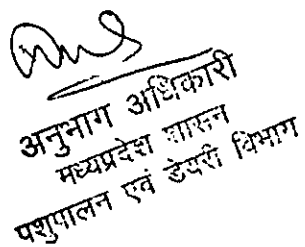 अनुभाग अधिकारी
मध्यप्रदेश शासन
पशुपालन एवं डेयरी विभाग